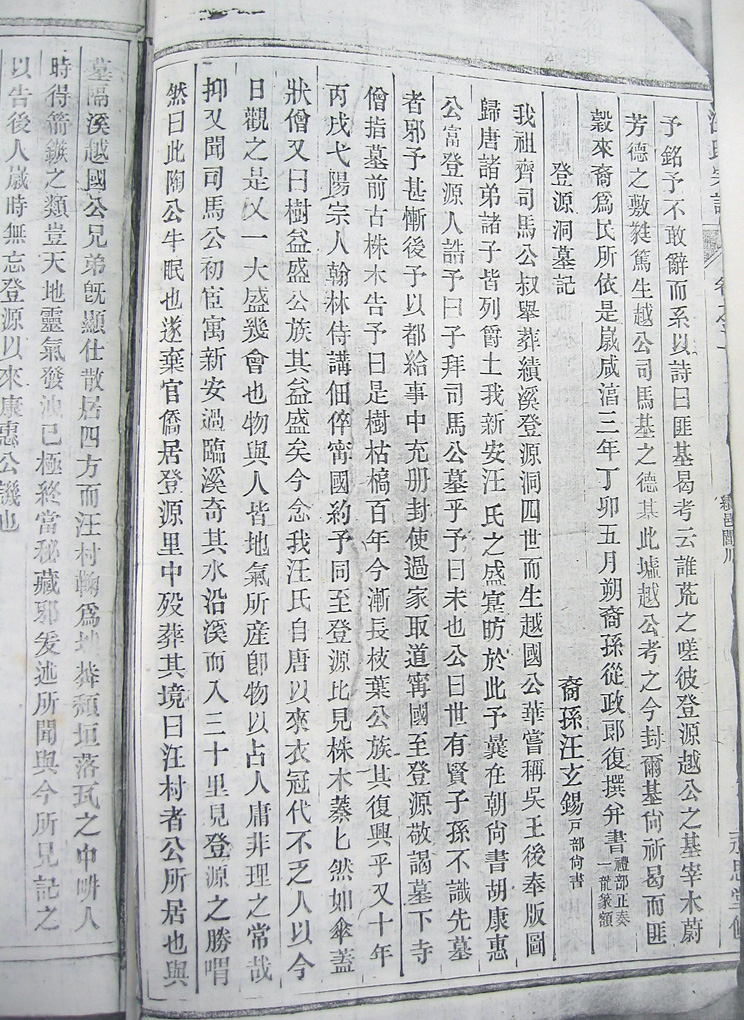 汪氏宗譜
卷之
績邑
予銘予不敢辭而系以詩曰匪基曷考云誰荒之嗟彼登源越公之基宰木蔚
芳德之敷甤篤生越公司馬基之德基此墟越公考之今封爾基尙祈曷而匪
穀來裔爲民所依是嵗咸淳三年丁卯五月朔裔孫從政郎復撰弁書禮部正奏一龍篆額
登源洞墓記
裔孫汪玄錫戸部尙書
我祖齊司馬公叔舉葬績溪登源洞四世而生越國公華嘗稱吳王後奉版圖
歸唐諸弟諸子皆列爵土我新安汪氏之盛寔昉於此予曩在朝尙書胡康惠
公富登源人誥予曰子拜司馬公墓乎予曰未也公曰世有賢子孫不識先墓
者邪予甚慚後予以都給事中充册封使過家取道甯國至登源敬謁墓下寺
僧指墓前古株木告予曰是樹枯槁百年今漸長枝葉公族其復興乎又十年
丙戌弋陽宗人翰林侍講佃倅甯國約予同至登源比見株木蓁匕然如傘蓋
狀僧又曰樹益盛公族其益盛矣今念我汪氏自唐以來衣冠代不乏人以今
日觀之是又一大盛幾會也物與人皆地氣所産卽物以占人庸非理之常哉
抑又聞司馬公初宦寓新安過臨溪奇其水沿溪而入三十里見登源之勝喟
然曰此陶公牛眠也遂棄官僑居登源里中歿葬其境曰汪村者公所居也與
墓隔溪越國公兄弟旣顯仕散居四方而汪村鞠爲地莽頹垣落瓦之中畊人
時得箭鏃之類豈天地靈氣發洩已極終當秘藏邪爰述所聞與今所見記之
以告後人嵗時無忘登源以來康惠公譏也